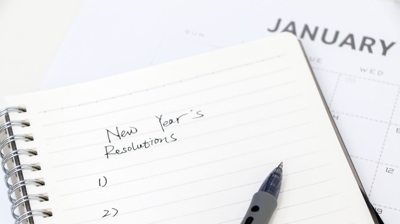 JANUARY
TUE WED
New Year's
Resolutions
1)
2)